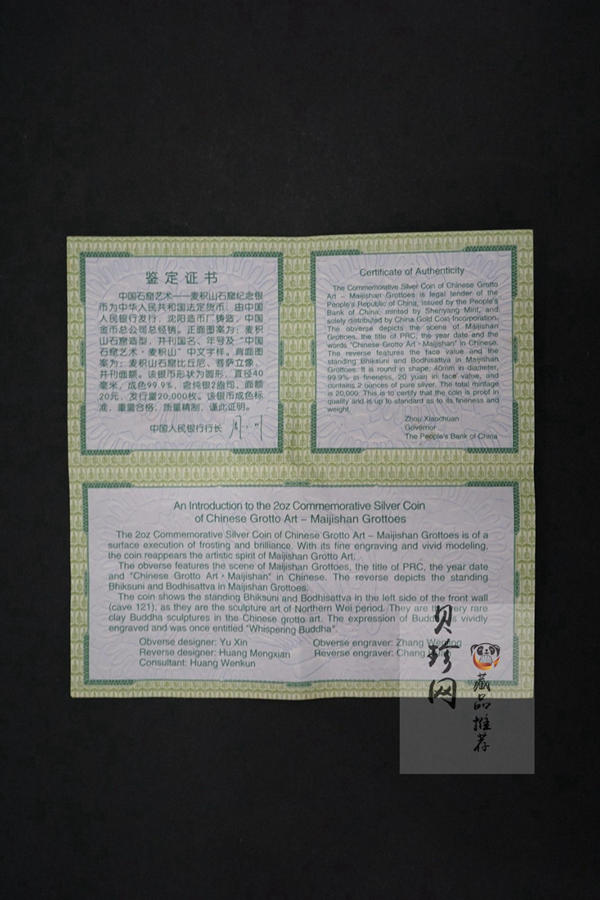 鉴定证书
中国石窟艺术——麦积山石窟纪念银
币为中华人民共和国法定货币，由中国
人民银行发行，沈阳造币厂铸造，中国
金币总公司总经销。正面图案为：麦积
山石窟造型，并刊国名、年号及“中国
石窟艺术·麦积山”中文字样。背面图
案为：麦积山石窟比丘尼、菩萨立像，
并刊面额。该银币形状为圆形，直径40
毫米，成色99.9%，含纯银2盎司，面额
20元，发行量20,000枚。该银币成色标
准，重量合格，质量精制，谨此证明。
中国人民银行行长
Certificate of Authenticity
The Commemorative Silver Coin of Chinese Grotto
Art – Maijishan Grottoes is legal tender of the
People's Republic of China, issued by the People's
Bank of China, minted by Shenyang Mint, and
solely distributed by China Gold Coin Incorporation.
The obverse depicts the scene of Maijishan
Grottoes, the title of PRC, the year date and the
words "Chinese Grotto Art · Maijishan" in Chinese.
The reverse features the face value and the
standing Bhiksuni and Bodhisattva in Maijishan
Grottoes. It is round in shape, 40mm in diameter,
99.9% in fineness, 20 yuan in face value, and
contains 2 ounces of pure silver. The total mintage
is 20,000. This is to certify that the coin is proof in
quality and is up to standard as to its fineness and
weight.
Zhou Xiaochuan
Governor
The People's Bank of China
An Introduction to the 2oz Commemorative Silver Coin
of Chinese Grotto Art – Maijishan Grottoes
The 2oz Commemorative Silver Coin of Chinese Grotto Art – Maijishan Grottoes is of a
surface execution of frosting and brilliance. With its fine engraving and vivid modeling,
the coin reappears the artistic spirit of Maijishan Grotto Art.
The obverse features the scene of Maijishan Grottoes, the title of PRC, the year date
and "Chinese Grotto Art · Maijishan" in Chinese. The reverse depicts the standing
Bhiksuni and Bodhisattva in Maijishan Grottoes.
The coin shows the standing Bhiksuni and Bodhisattva in the left side of the front wall
(cave 121), as they are the sculpture art of Northern Wei period. They are the very rare
clay Buddha sculptures in the Chinese grotto art. The expression of Buddha is vividly
engraved and was once entitled "Whispering Buddha".
Obverse designer: Yu Xin
Obverse engraver: Zhang
Reverse designer: Huang Mengxian
Reverse engraver: Chang
Consultant: Huang Wenkun
贝珍网
藏品推荐